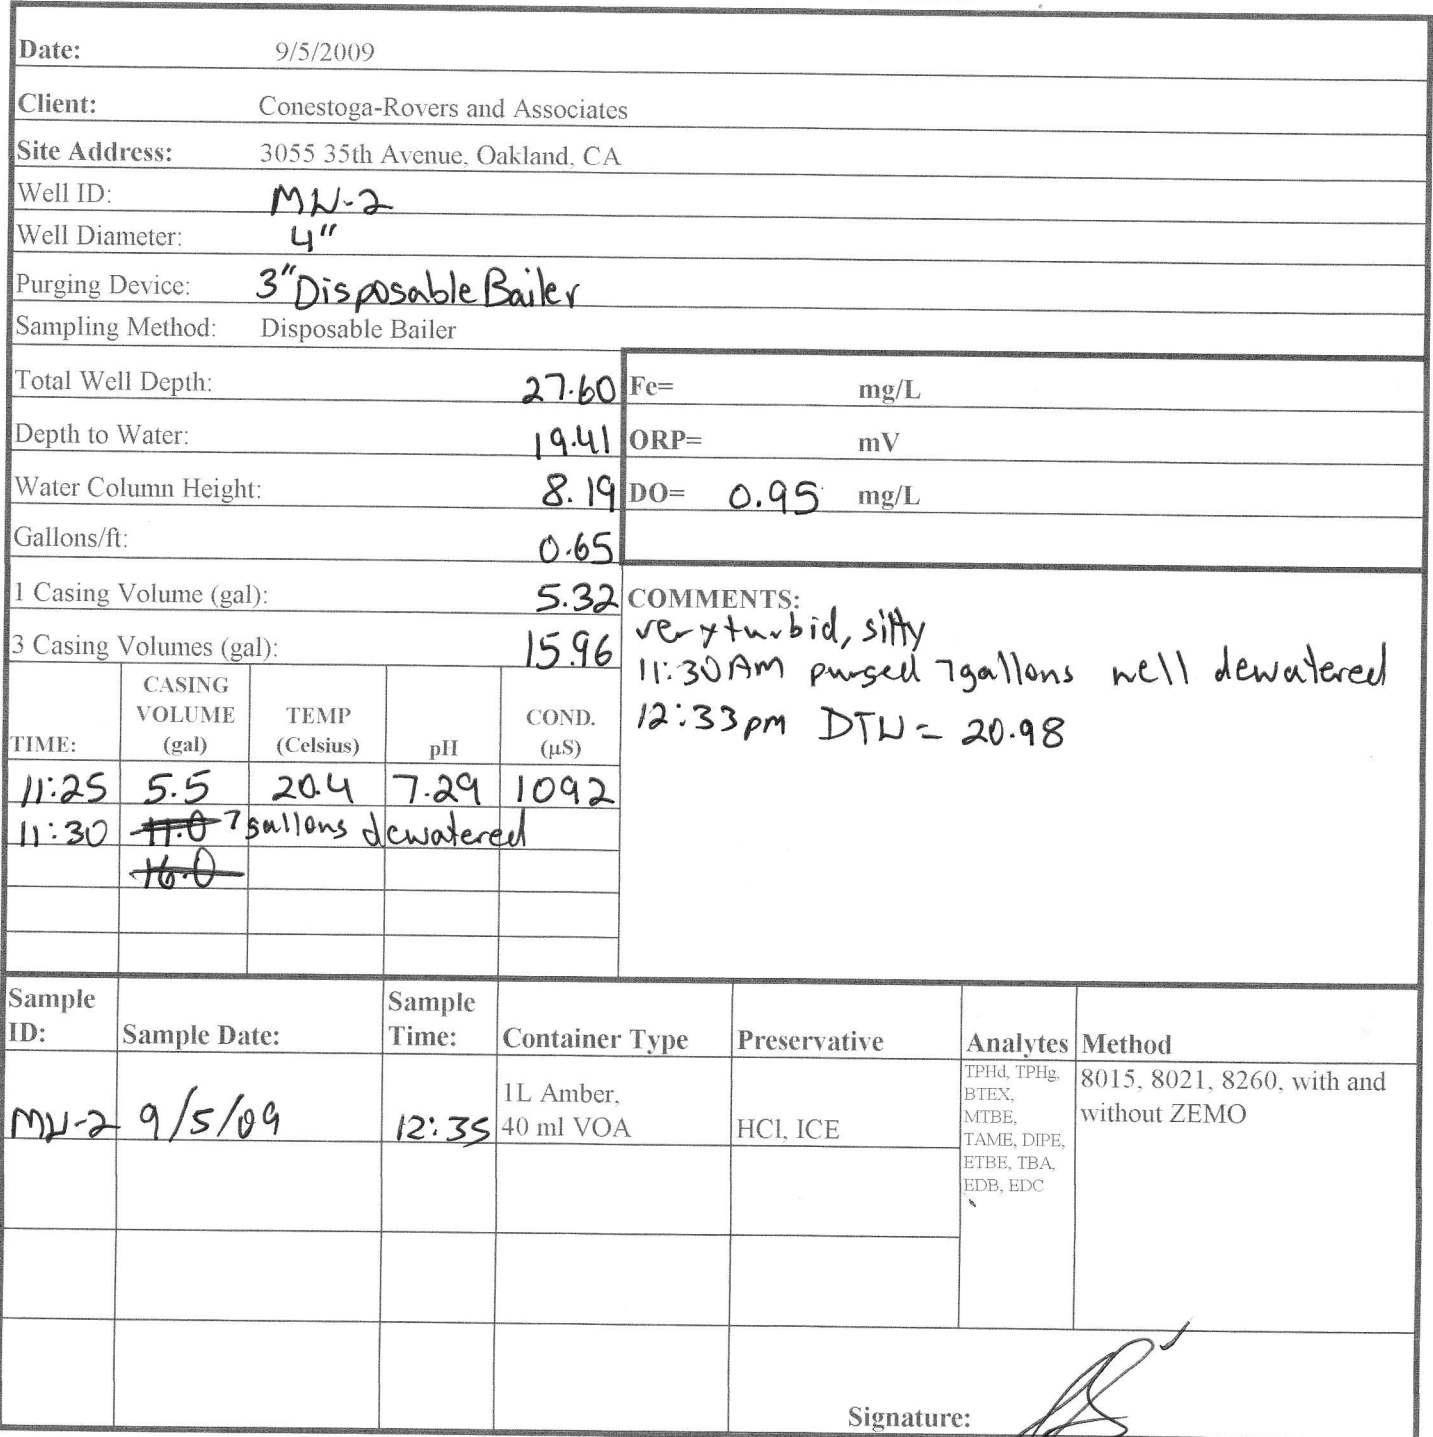 Date: 9/5/2009
Client: Conestoga-Rovers and Associates
Site Address: 3055 35th Avenue, Oakland, CA
Well ID: MW-2
Well Diameter: 4"
Purging Device: 3" Disposable Bailer
Sampling Method: Disposable Bailer
Total Well Depth: 27.60
Fe= mg/L
Depth to Water: 19.41
ORP= mV
Water Column Height: 8.19
DO= 0.95 mg/L
Gallons/ft: 0.65
1 Casing Volume (gal): 5.32
3 Casing Volumes (gal): 15.96
COMMENTS:
very turbid, silty
11:30 AM purged 7 gallons well dewatered
12:33 pm DTW = 20.98
TIME: CASING VOLUME (gal) TEMP (Celsius) pH COND. (µS)
11:25 5.5 20.4 7.29 1092
11:30 11.0 7 gallons dewatered
16.0
Sample ID: Sample Date: Sample Time: Container Type Preservative Analytes Method
MW-2 9/5/09 12:35 1L Amber, 40 ml VOA HCl, ICE
TPHd, TPHg,
BTEX,
MTBE,
TAME, DIPE,
ETBE, TBA,
EDB, EDC
8015, 8021, 8260, with and
without ZEMO
Signature: